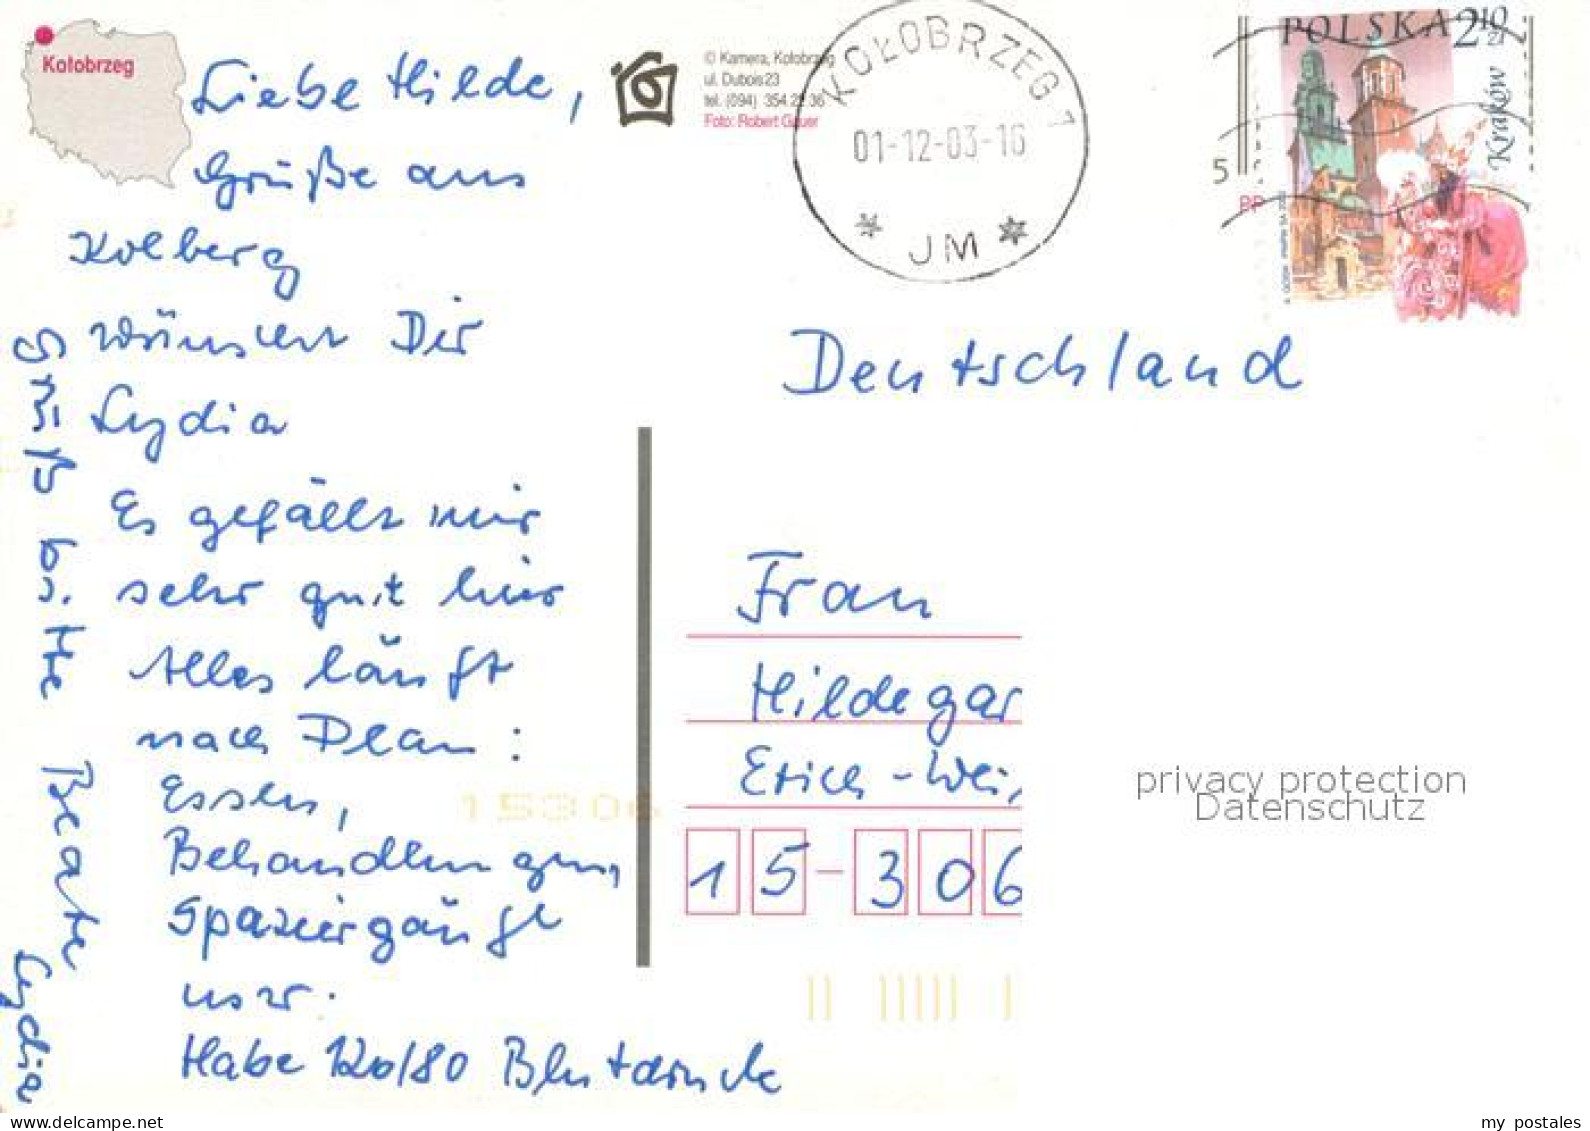 Kołobrzeg
Liebe Hilde,
Grüße aus
Kolberg
wünscht Dir
Lydia
Es gefällt mir
sehr gut hier
Alles läuft
nach Plan:
Essen,
Behandlungen,
Spaziergänge
usw.
Habe 120/80 Blutdruck
Grüß bitte Beate
Lydia
© Kamera, Kołobrzeg
ul. Dubois 23
tel. (094) 354 25 36
Foto: Robert Gauer
KOŁOBRZEG 1
01-12-03-16
* JM *
POLSKA 2 10 zł
Kraków
5
PP
Deutschland
Frau
Hildegar
Erich-Wei
15-306
15306
privacy protection
Datenschutz
my postales